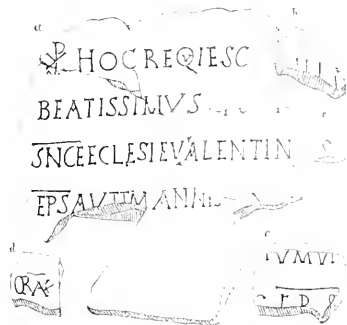 ☧ HOC REQIESC
BEATISSIMVS
SNCE ECLESIE VALENTIN
EPS AVTEM ANNI
ORA
TVMVL